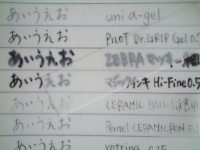 あいうえお uni α-gel
あいうえお PILOT Dr.GRIP Gel 0.5
あいうえお ZEBRA
あいうえお マジックインキ Hi-Fine 0.5
あいうえお CERAMIC BALL
あいうえお Pentel CERAMICRON 0.1
あいうえお rotring 0.25